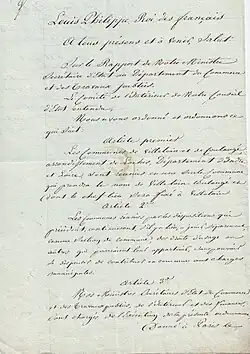 Louis Philippe, Roi des français
A tous présens et à venir, Salut
Sur le Rapport de Notre Ministre
Secrétaire d'Etat au Département du Commerce
et des Travaux publics.
Le Comité de l'Intérieur de Notre Conseil
d'Etat entendu
Nous avons ordonné et ordonnons ce
qui suit.
Article premier
Les Communes de Villelain et de
arrondissement de Département d'Indre
et Loire, sont réunies en une seule Commune
qui prendra le nom de
dont le chef lieu sera fixé à
Article 2e
Les Communes réunies par les dispositions qui
précèdent continueront, s'il y a lieu, à jouir séparément,
comme section de commune, des droits d'usage ou
autres qui pourraient leur appartenir, sans pouvoir
se dispenser de contribuer en commun aux charges
municipales.
Article 3e
Nos Ministres Secrétaires d'Etat du Commerce
et des Travaux publics, de l'Intérieur et des finances
sont chargés de l'exécution de la présente ordonnance
Donné à Paris le